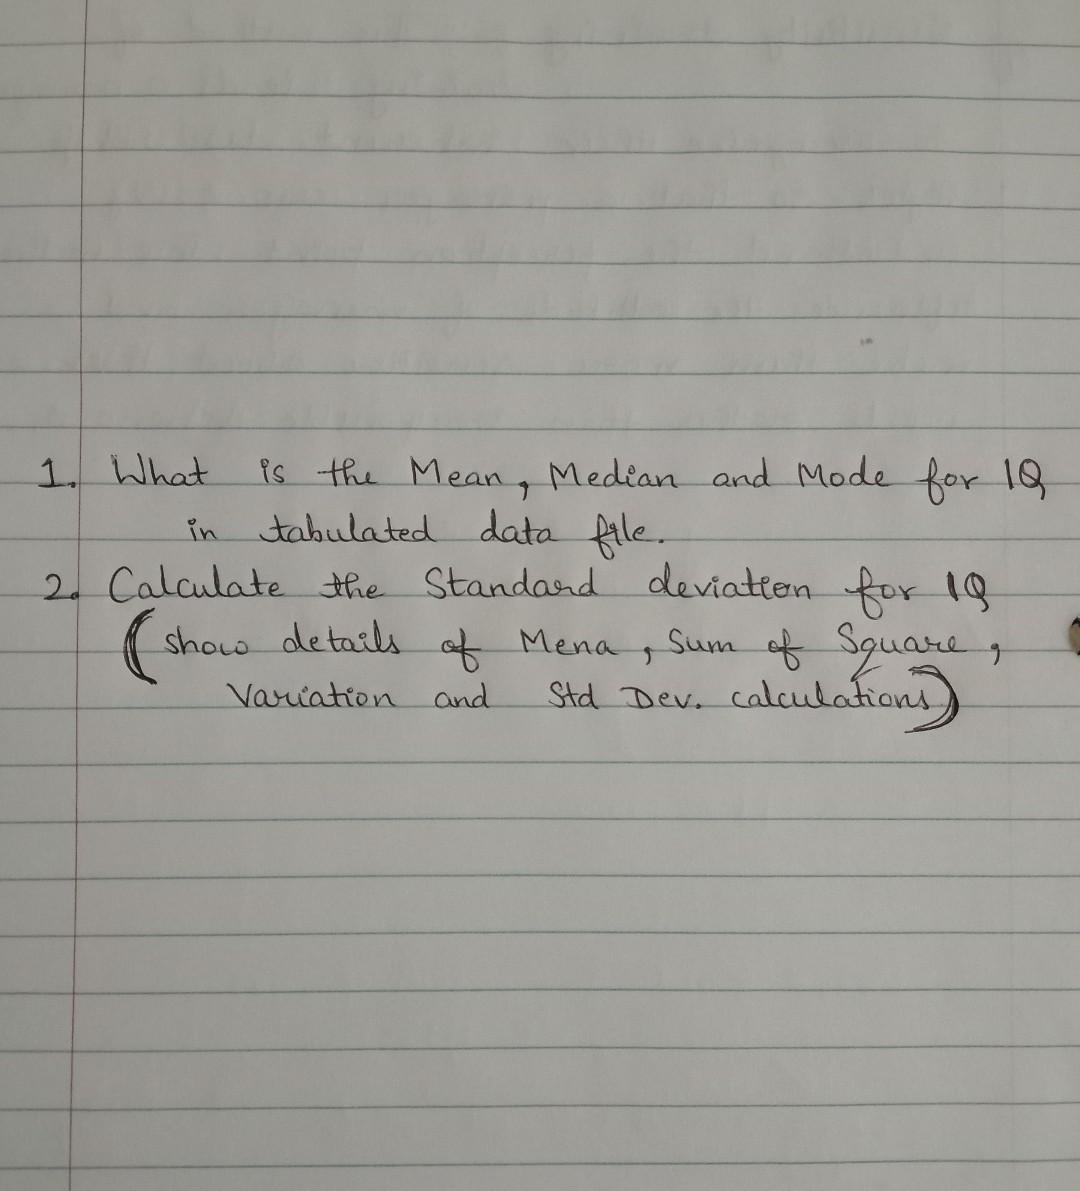 1. What is the Mean, Median and Mode for IQ
in tabulated data file.
2. Calculate the Standard deviation for IQ
(show details of Mena, Sum of Square,
Variation and Std Dev. calculations)